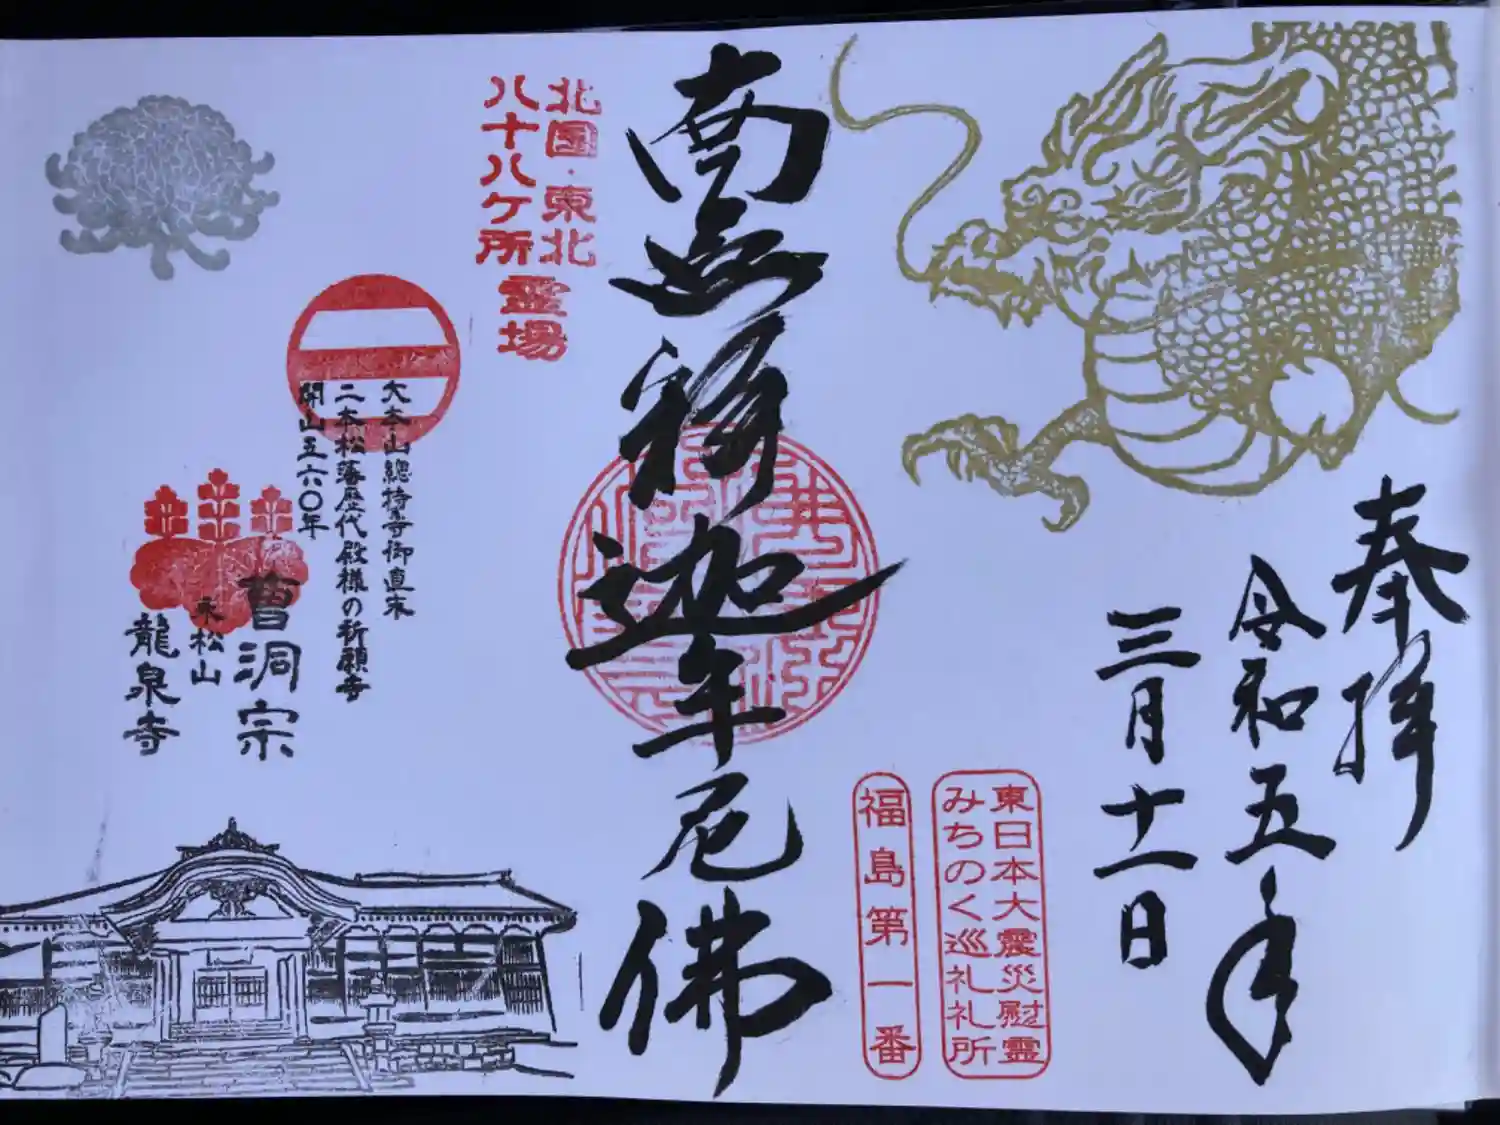 奉拝
令和五年
三月十一日
東日本大震災慰霊
みちのく巡礼札所
福島第一番
南無釋迦牟尼佛
北国・東北
八十八ケ所
霊場
大本山總持寺御直末
二本松藩歴代殿様の祈願寺
開山五六〇年
曹洞宗
永松山
龍泉寺